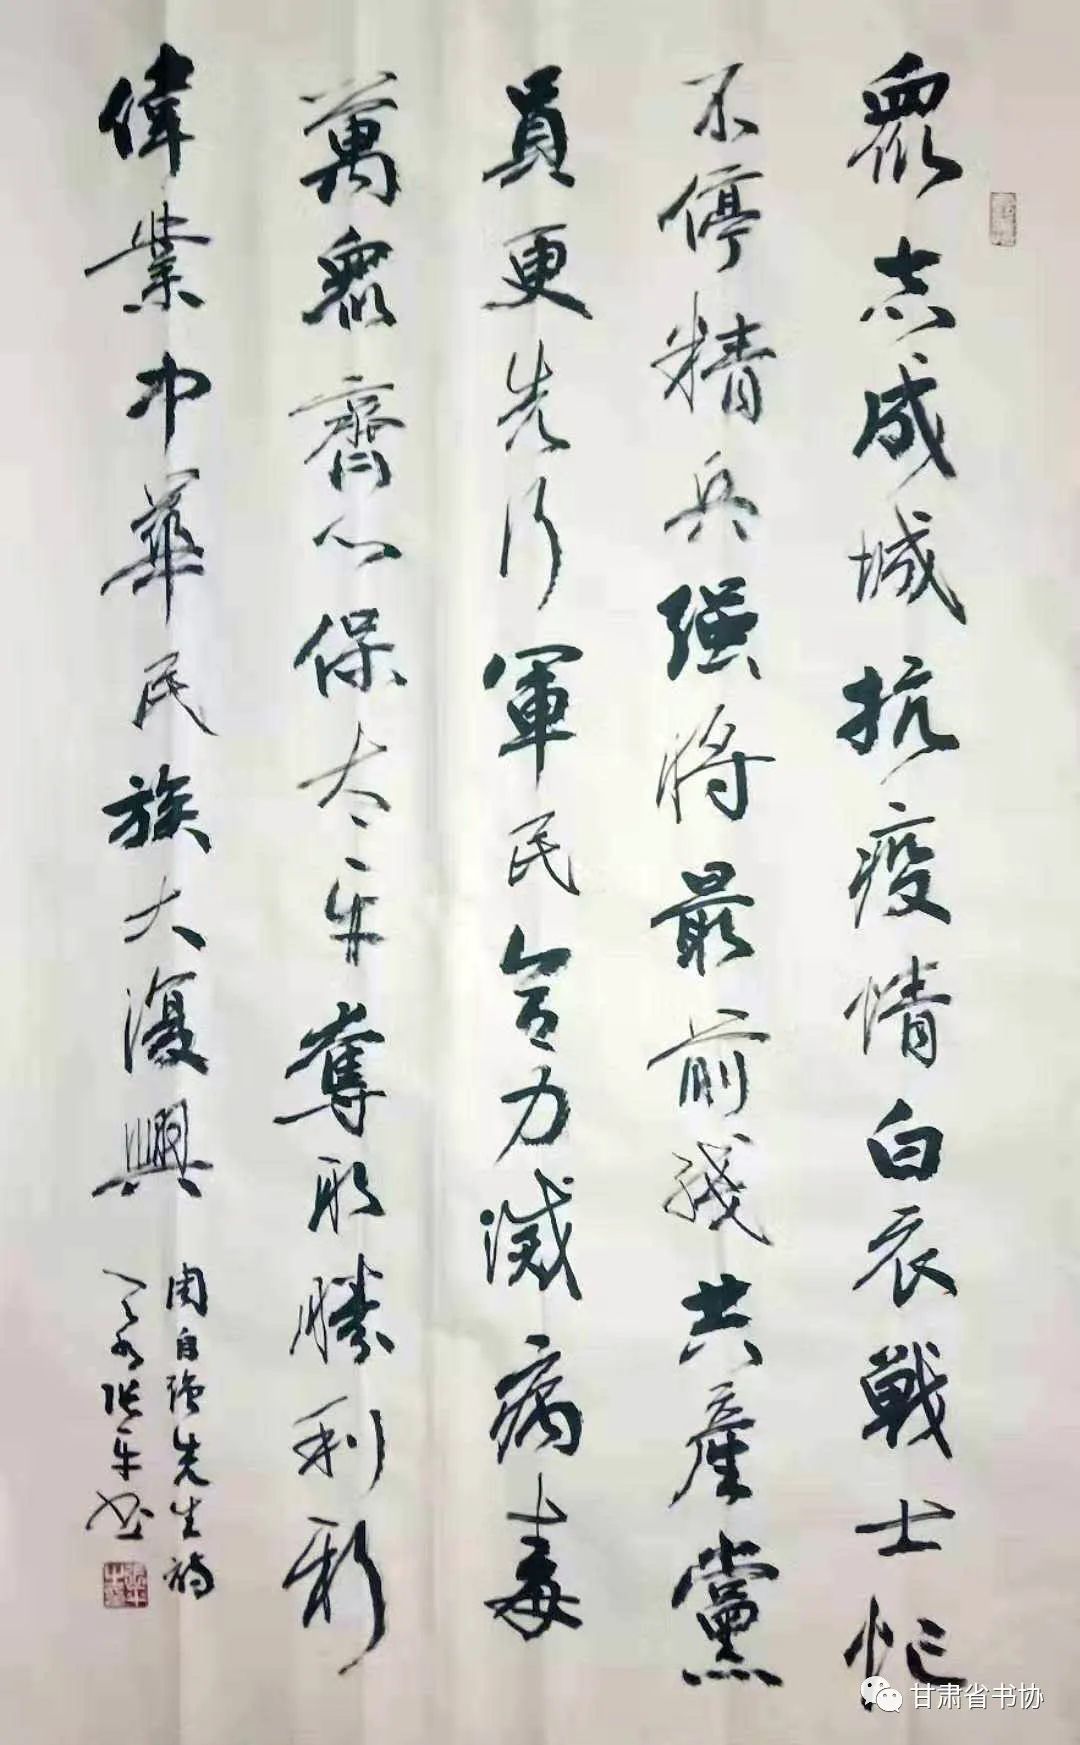 眾志成城抗疫情白衣戰士忙
不停精兵强將最前綫共產黨
員更先行軍民合力滅病毒
萬眾齊心保太平奪取勝利新
偉業中華民族大復興
周自强先生詩
天水張平書
甘肃省书协